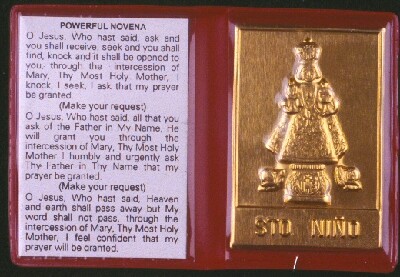 POWERFUL NOVENA
O Jesus, Who hast said, ask and
you shall receive, seek and you shall
find, knock and it shall be opened to
you, through the intercession of
Mary, Thy Most Holy Mother, I
knock, I seek, I ask that my prayer
be granted.
(Make your request)
O Jesus, Who hast said, all that you
ask of the Father in My Name, He
will grant you through the
intercession of Mary, Thy Most Holy
Mother I humbly and urgently ask
Thy Father in Thy Name that my
prayer be granted.
(Make your request)
O Jesus, Who hast said, Heaven
and earth shall pass away but My
word shall not pass, through the
intercession of Mary, Thy Most Holy
Mother, I feel confident that my
prayer will be granted.
STO NIÑO